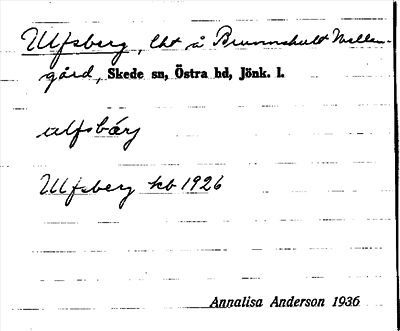 Ulfsberg, lht å Brunnshult Mellan-
gård, Skede sn, Östra hd, Jönk. l.
ulfsbärj
Ulfsberg kb 1926
Annalisa Anderson 1936